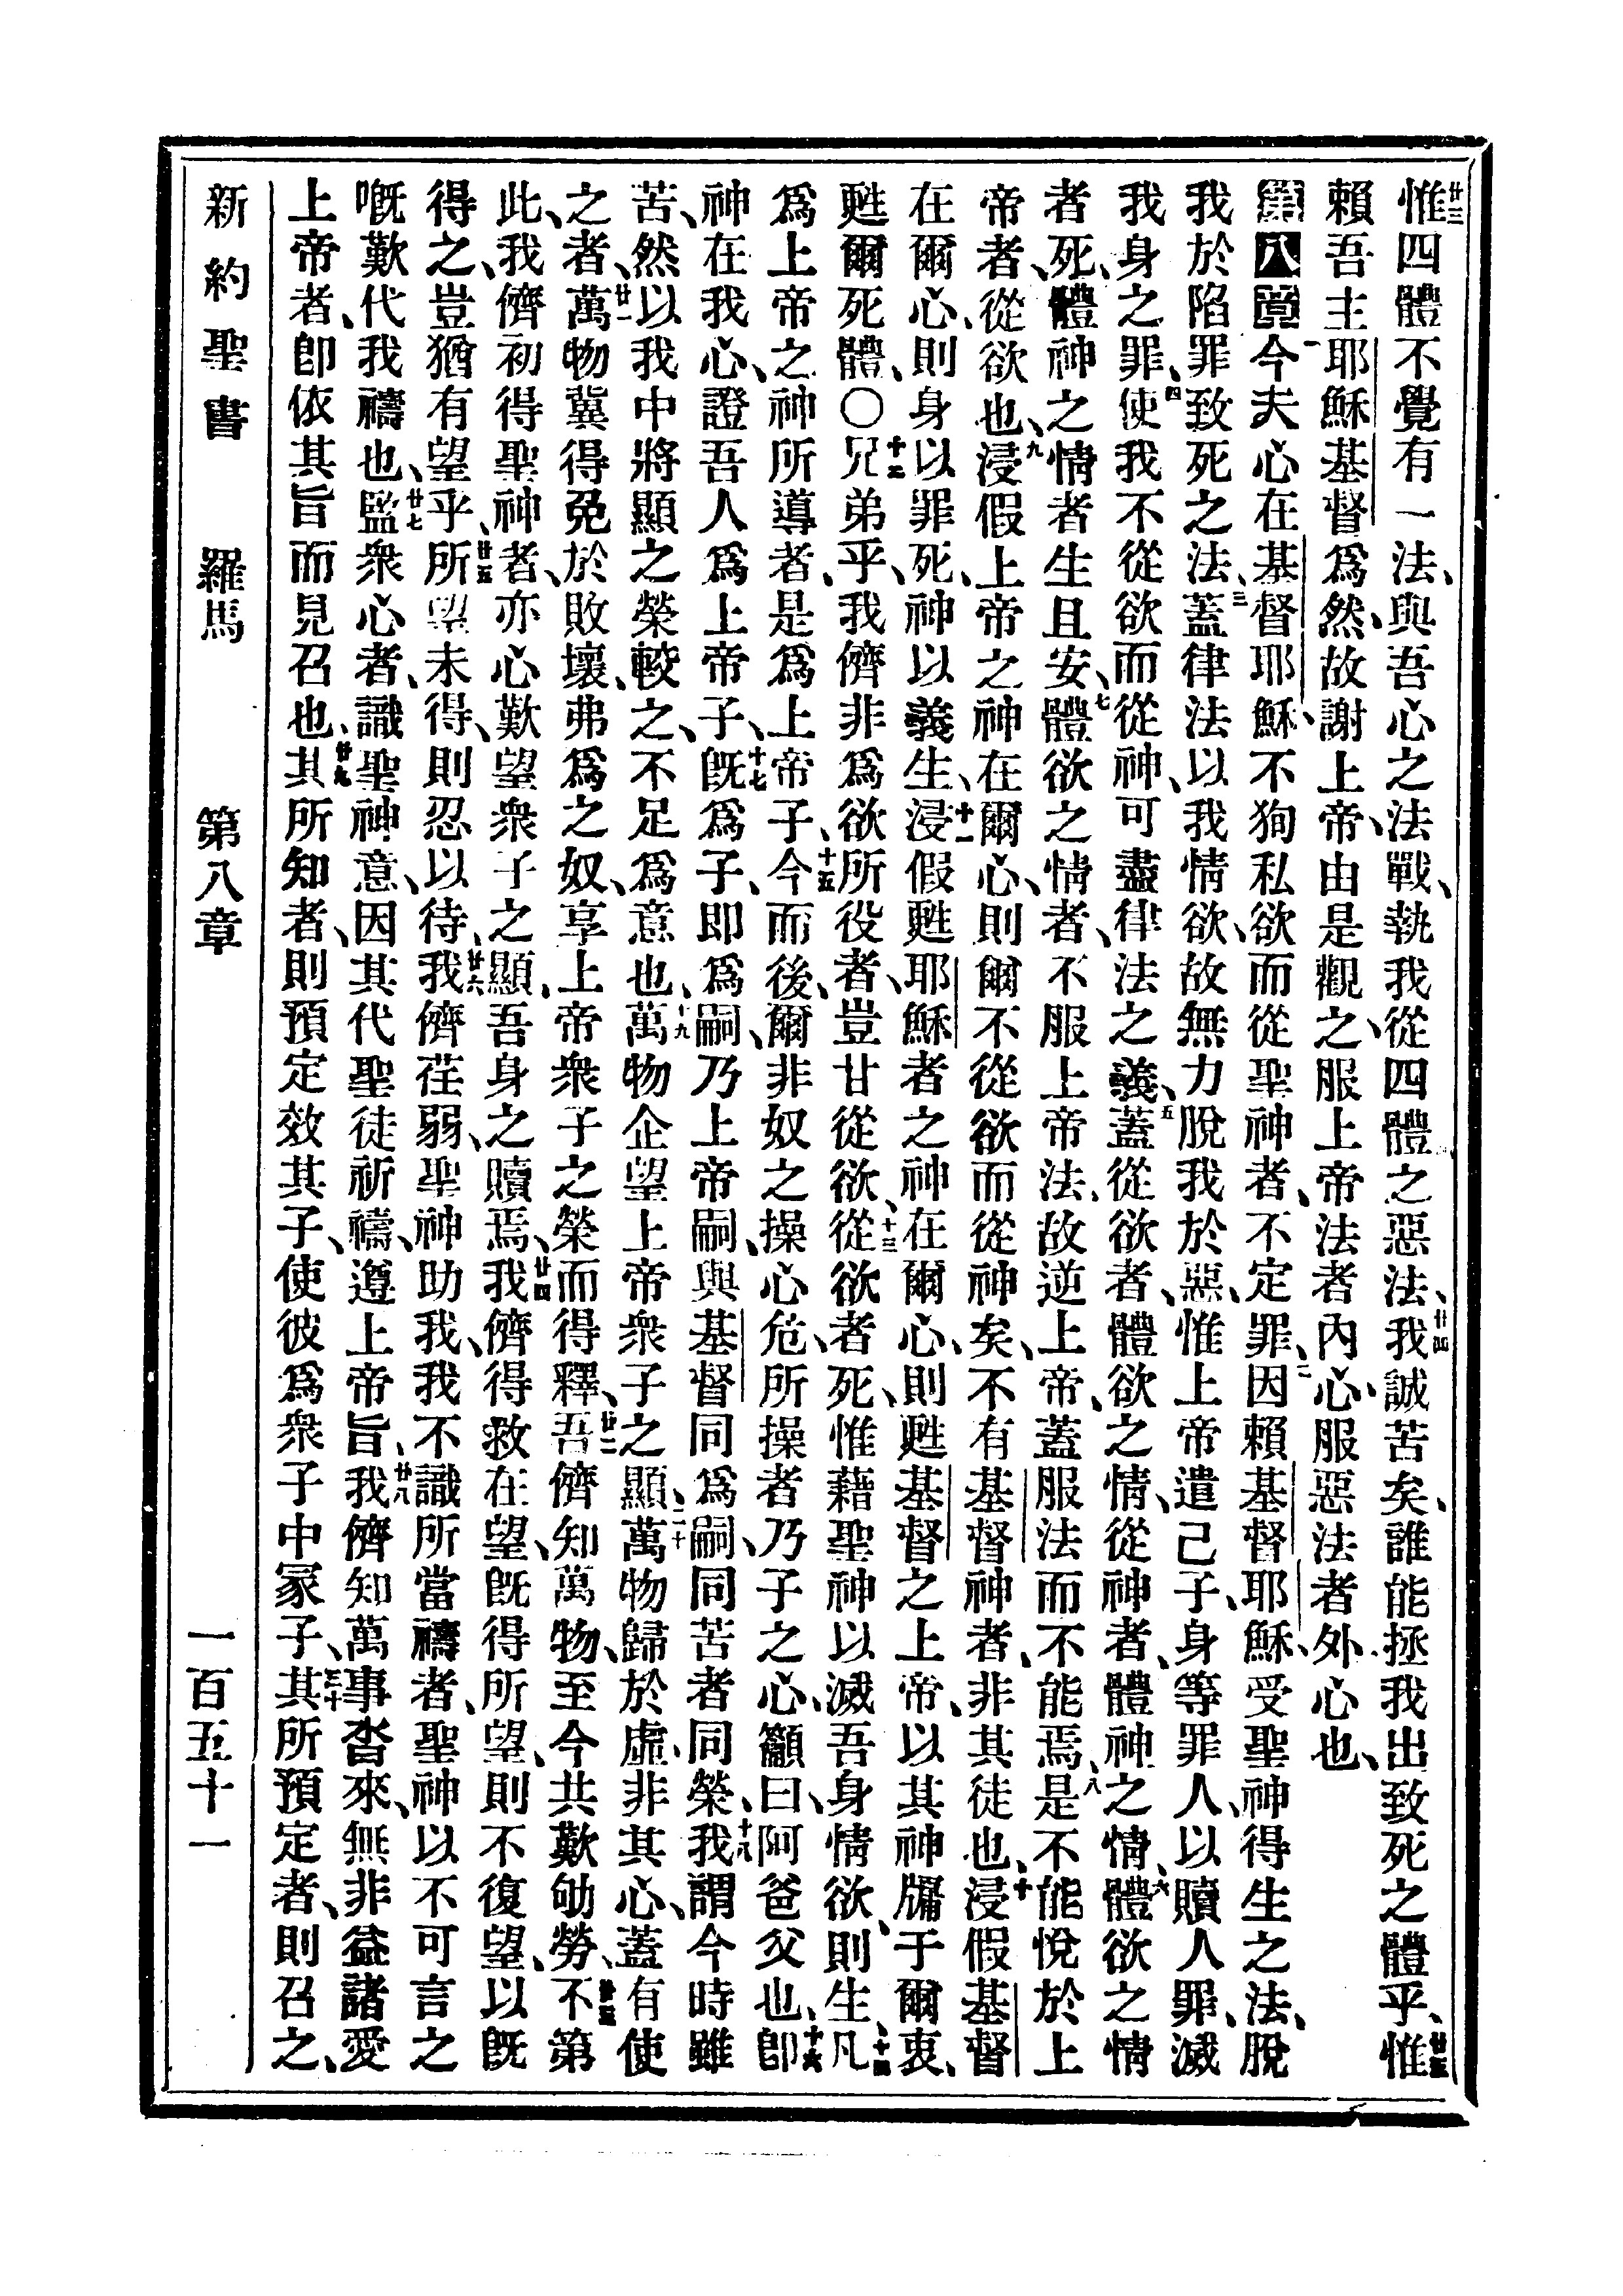 廿三惟四體不覺有一法、與吾心之法戰、執我從四體之惡法、廿四我誠苦矣、誰能拯我出致死之體乎、廿五惟
賴吾主耶穌基督爲然、故謝上帝、由是觀之、服上帝法者內心、服惡法者外心也、
第八章一今夫心在基督耶穌、不狥私欲而從聖神者、不定罪、二因賴基督耶穌、受聖神得生之法、脫
我於陷罪致死之法、三蓋律法以我情欲、故無力脫我於惡、惟上帝遣己子、身等罪人、以贖人罪、滅
我身之罪、四使我不從欲而從神、可盡律法之義、五蓋從欲者、體欲之情、從神者、體神之情、六體欲之情
者死、體神之情者生且安、七體欲之情者、不服上帝法、故逆上帝、蓋服法而不能焉、八是不能悅於上
帝者、從欲也、九浸假上帝之神在爾心、則爾不從欲而從神矣、不有基督神者、非其徒也、十浸假基督
在爾心、則身以罪死、神以義生、十一浸假甦耶穌者之神在爾心、則甦基督之上帝、以其神牖于爾衷、
甦爾死體、〇十二兄弟乎、我儕非爲欲所役者、豈甘從欲、十三從欲者死、惟藉聖神以滅吾身情欲、則生、十四凡
爲上帝之神所導者、是爲上帝子、十五今而後、爾非奴之操心危、所操者乃子之心、籲曰、阿爸父也、十六卽
神在我心、證吾人爲上帝子、十七旣爲子、即爲嗣、乃上帝嗣、與基督同爲嗣、同苦者同榮、十八我謂今時雖
苦、然以我中將顯之榮較之、不足爲意也、十九萬物企望上帝衆子之顯、二十萬物歸於虛、非其心、蓋有使
之者、廿一萬物冀得免於敗壞、弗爲之奴、享上帝衆子之榮而得釋、廿二吾儕知萬物、至今共歎劬勞、廿三不第
此、我儕初得聖神者、亦心歎望衆子之顯、吾身之贖焉、廿四我儕得救在望、旣得所望、則不復望、以旣
得之、豈猶有望乎、廿五所望未得、則忍以待、廿六我儕荏弱、聖神助我、我不識所當禱者、聖神以不可言之
嘅歎代我禱也、廿七監衆心者、識聖神意、因其代聖徒祈禱、遵上帝旨、廿八我儕知萬事沓來、無非益諸愛
上帝者、卽依其旨而見召也、廿九其所知者、則預定效其子、使彼爲衆子中冢子、三十其所預定者、則召之、
新約聖書 羅馬 第八章 一百五十一